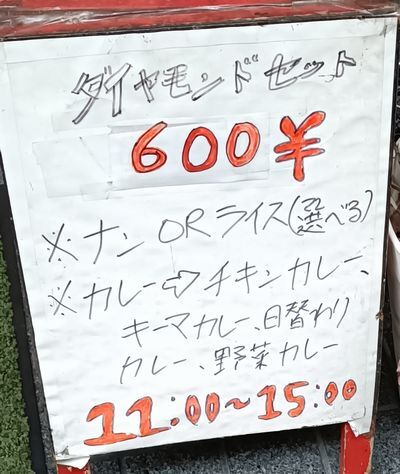 ダイヤモンドセット
600¥
※ナン ORライス(選べる)
※カレー⇨チキンカレー、
キーマカレー、日替わり
カレー、野菜カレー
11:00~15:00